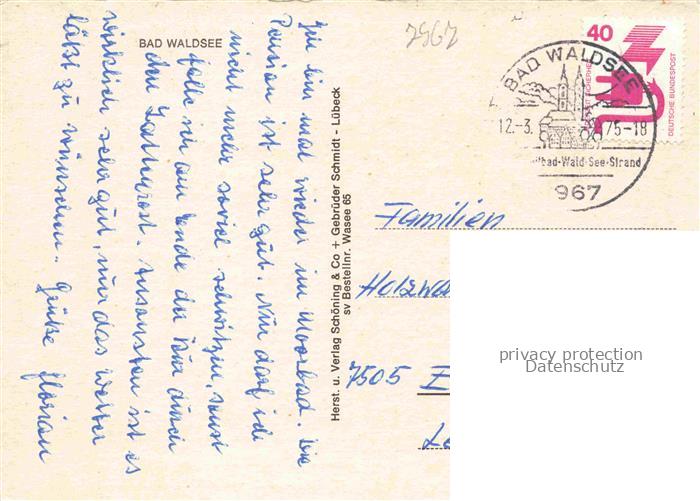 BAD WALDSEE
7967
Bin ein mal wieder im Moorbad. Die
Pension ist sehr gut. Nur darf ich
nicht mehr soviel schwitzen, sonst
falle ich am Ende der Kur durch
den Lattenrost. Ansonsten ist es
wirklich sehr gut, nur das Wetter
läßt zu wünschen. Grüße Florian
Herst. u. Verlag Schöning & Co + Gebrüder Schmidt - Lübeck
sv Bestellnr. Wasee 65
40
DEUTSCHE BUNDESPOST
BAD WALDSEE
12.-3. 75-18
bad-Wald-See-Strand
967
Familien
7505 E
privacy protection
Datenschutz